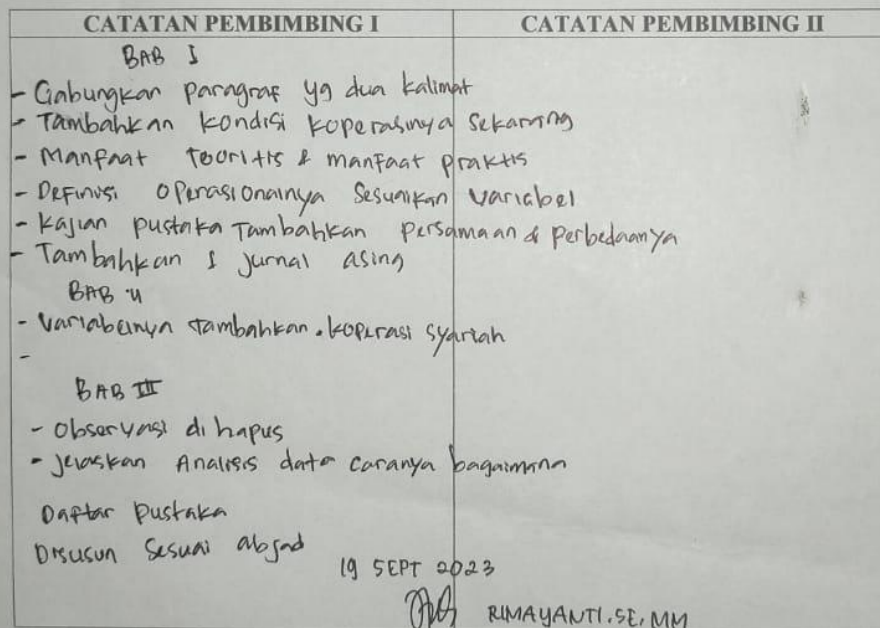 CATATAN PEMBIMBING I
CATATAN PEMBIMBING II
BAB I
- Gabungkan paragraf yg dua kalimat
- Tambahkan kondisi koperasinya sekarang
- Manfaat teoritis & manfaat praktis
- Definisi operasionalnya sesuaikan variabel
- Kajian pustaka Tambahkan persamaan & perbedaanya
- Tambahkan 1 jurnal asing
BAB II
- Variabelnya tambahkan. koperasi syariah
-
BAB III
- Observasi di hapus
- Jelaskan Analisis data caranya bagaimana
Daftar Pustaka
Disusun Sesuai abjad
19 SEPT 2023
RIMAYANTI.SE.MM